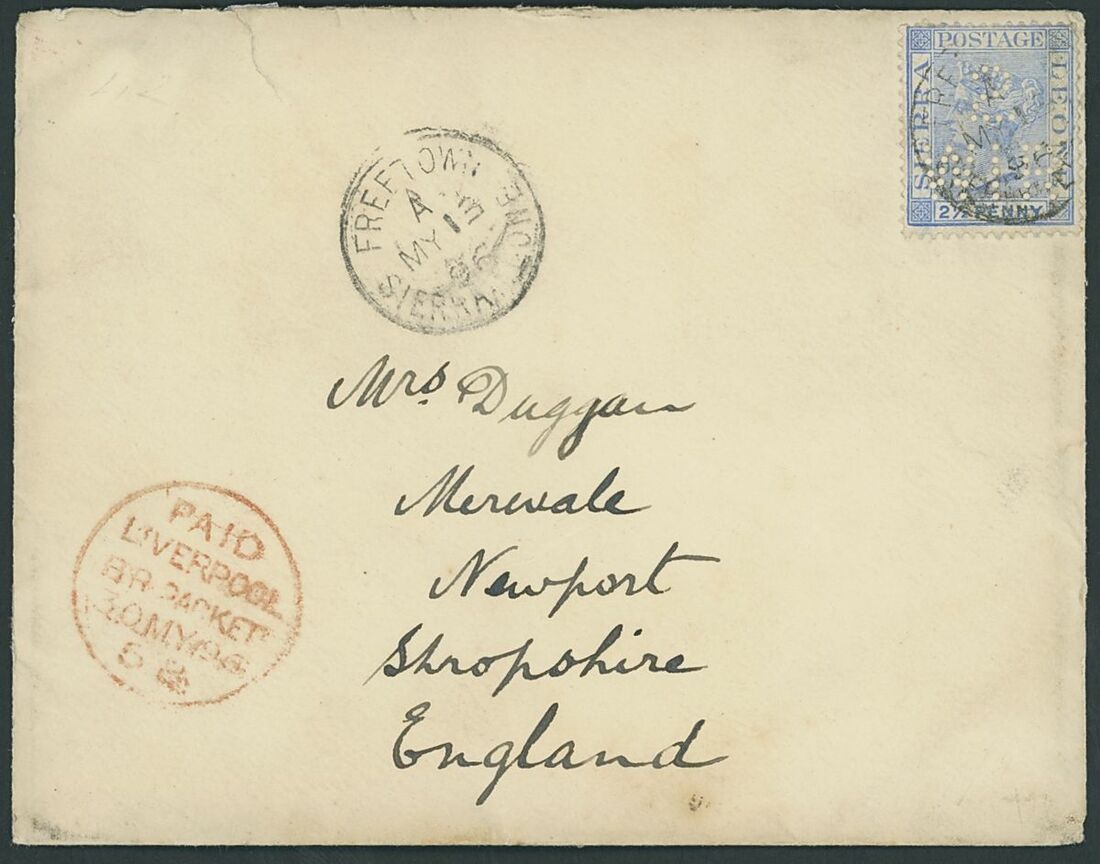 POSTAGE
SIERRA
LEONE
2½ PENNY
FREETOWN
A
MY 13
96
SIERRA LEONE
Mrs. Duggan
Merevale
Newport
Shropshire
England
PAID
LIVERPOOL
BR. PACKET
30.MY.96